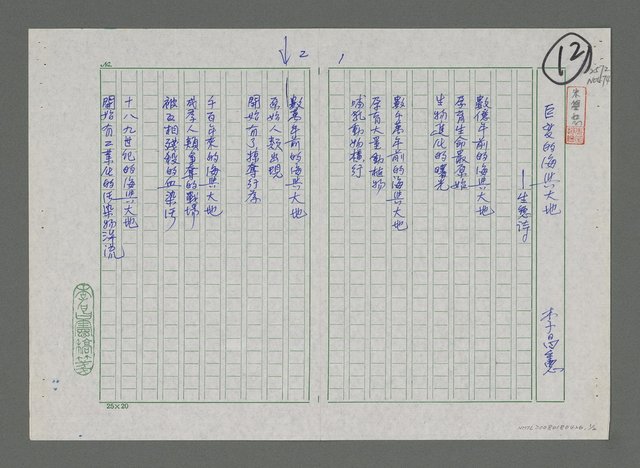 12
巨変的海與大地
——生態詩。
李昌憲
數億年前的海與大地
孕育生命最原始
生物進化的曙光
數千萬年前的海與大地
孕育大量動植物
哺乳動物橫行
1
2
數萬年前的海與大地
原始人類出現
開始有了掠奪行為
千百年來的海與大地
成為人類爭奪的戰場
被互相殘殺的血染污
十八九世紀的海與大地
開始有工業化的污染物洋流
李昌憲稿箋
No.
25×20